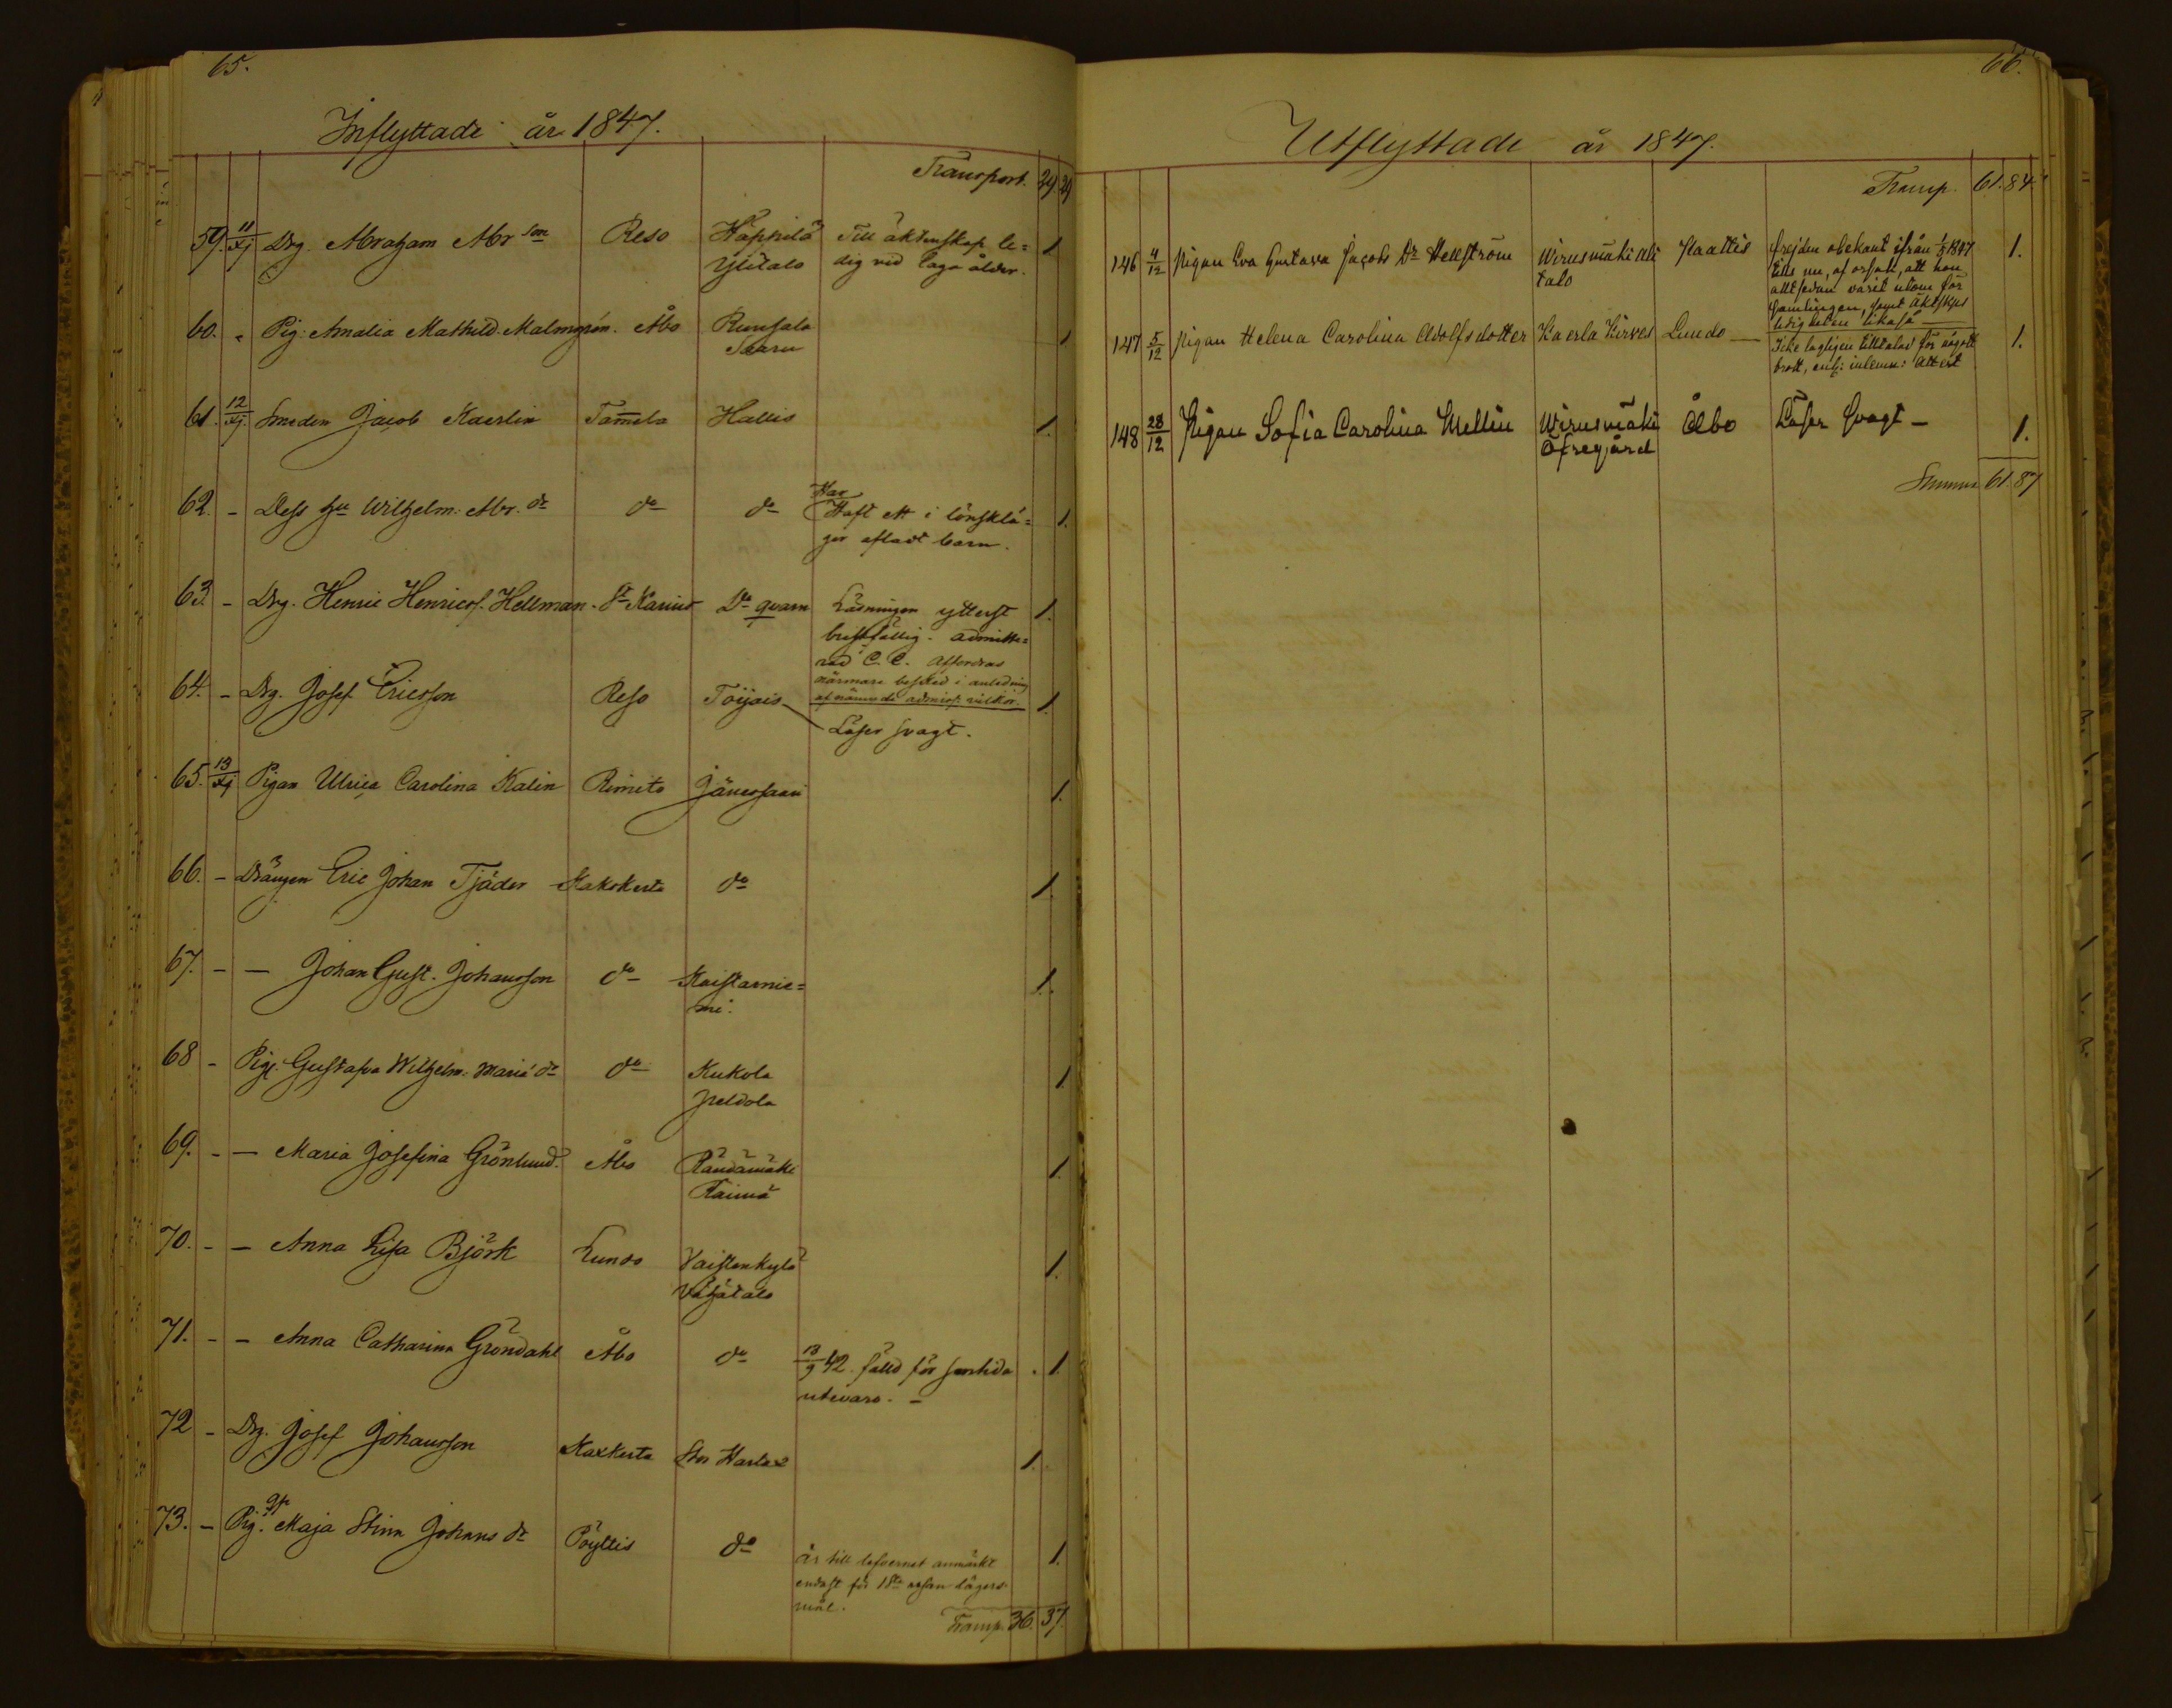 65.
Inflyttade år 1847.
Transport. 29 29
59. 11/XI Drg. Abraham Abr son Reso Häppilä Till äktenskap le=
Ylitalo dig vid laga ålder. 1
60. " Pig. Amalia Mathild. Malmgrén. Åbo Runsala 1
Saaru
61. 12/XI. Smeden Jacob Kaerlin Tam̄ela Hallis 1.
62. - Dess hu Wilhelm. Abr. dr do do Har
Haft ett i lönsklä= 1.
ger afladt barn.
63. - Drg. Henric Henrics. Hellman. St Karins Do qvarn Läsningen ytterst 1.
bristfällig. admitte=
rad C. C. Affordras
närmare besked i anledning
af nämnde admiss. vilkor.
64. - Drg. Josef Ericsson Reso Toijais 1.
Läser svagt.
65. 13/XI Pigan Ulrica Carolina Kalin Rimito Jänessaari 1.
66. - Drängen Eric Johan Tjäder Kakskerta do 1.
67. - — Johan Gust. Johansson do Kaistarnie= 1.
mi.
68 - Pig. Gustafva Wilhelm. Mariæ dr do Kukola 1
Peldola
69. - — Maria Josefina Grönlund. Åbo Rändämäki 1.
Raimä
70. - — Anna Lisa Björk Lundo Vaistenkylä 1.
Vähätalo
71. - - Anna Catharina Gröndahl Åbo do 13/9 42. fälld för . 1.
utevaro. -
72 - Drg. Josef Johansson Kaxkerta Stor Harlax 1.
73. - Pig. Maja Stina Johans dr Pöyttis do är till lefvernet anmärkt 1.
endast för 1sta resan lägers-
mål.
Transp. 36. 37.
66.
Utflyttade år 1847.
Transp. 61. 84.
146 4/12 Pigan Eva Gustava Jacobs Dr Hellström Wirusmäki Ali Plaattis frejden obekant ifrån 1/5 1847 1.
talo tills nu, af orsak, att hon
allt sedan varit utom för
samlingen, samt äktskps
ledigheten likaså
147 5/12 Pigan Helena Carolina Adolfsdotter Kaerla Kirves Lundo — Icke lagligen tilltalad för något 1.
brott, enl: inlemn: attest
148 28/12 Pigan Sofia Carolina Mellin Wirusmäki Åbo Läser svagt — 1.
Öfregård
Summa 61. 87